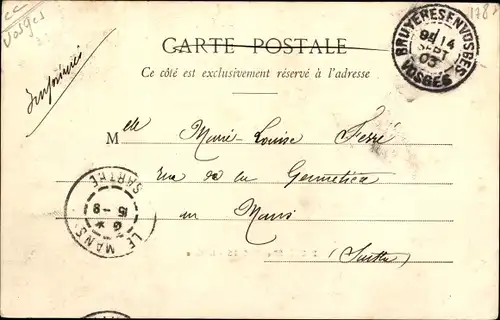 cc
Vosges
178
Imprimés
CARTE POSTALE
Ce côté est exclusivement réservé à l'adresse
BRUYERES EN VOSGES
14
SEPT
03
VOSGES
Melle Marie-Louise Ferré
rue de la
au Mans
(Sarthe)
LE MANS
15-9
SARTHE